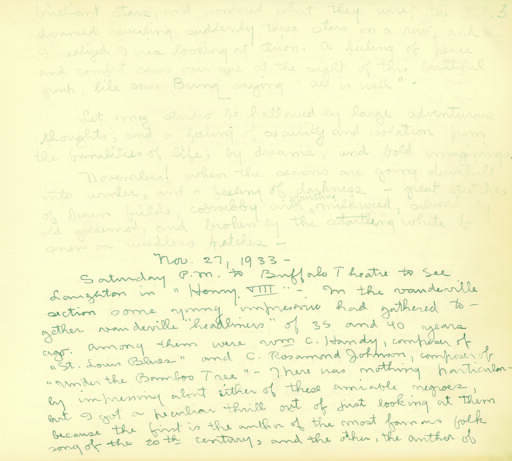 brilliant stars, and wondered what they were, till
dreamed wheeling suddenly three stars in a row, and
I realized I was looking at Orion. A feeling of peace
and comfort came over me at the sight of this faithful
like some Being saying "all is well".
Let my studio be hallowed by large adventurous
thoughts, and a feeling of security and isolation from
the banalities of life, by dreams, and bold imaginings.
November when the seasons are going downhill
into winter, and a feeling of darkness – great stretches
of brown fields, with
old and broken by the startling white of
snow in patches –
Nov. 27, 1933 –
Saturday P.M. to Buffalo Theatre to see
Laughton in "Henry VIII" – In the vaudeville
section some young impresario had gathered to-
gether vaudeville "headliners" of 35 and 40 years
ago. Among them were Wm C. Handy, composer of
"St. Louis Blues" and C. Rosamond Johnson, composer of
"Under the Bamboo Tree" – There was nothing particular-
ly impressing about either of these amiable negroes,
but I got a peculiar thrill out of just looking at them
because the first is the author of the most famous folk
song of the 20th century, and the other, the author of